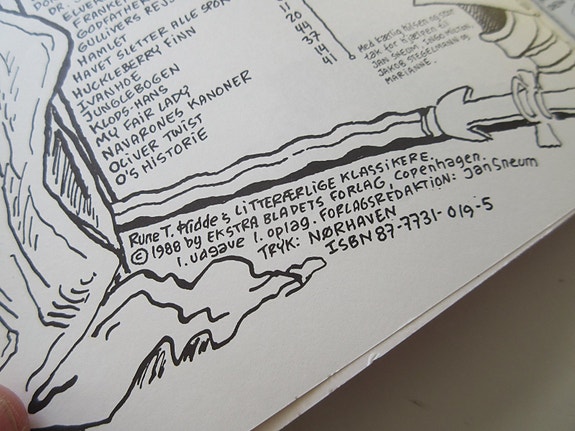 ELVER
FRANKE
GODFATHER
GULLIVERS REJS
HAMLET
HAVET SLETTER ALLE SPOR
HUCKLEBERRY FINN
IVANHOE
JUNGLEBOGEN
KLODS-HANS
MY FAIR LADY
NAVARONES KANONER
OLIVER TWIST
O'S HISTORIE
11
20
44
39
37
14
41
Med kærlig hilsen og stor
tak for hjælpen til
JAN SNEUM, INGE MILFORT
JAKOB STEGELMANN og
MARIANNE.
Rune T. Kidde's LITTERÆRLIGE KLASSIKERE.
© 1988 by EKSTRA BLADETS FORLAG, Copenhagen.
1. udgave 1. oplag. FORLAGSREDAKTION: Jan Sneum
TRYK: NØRHAVEN
ISBN 87-7731-019-5